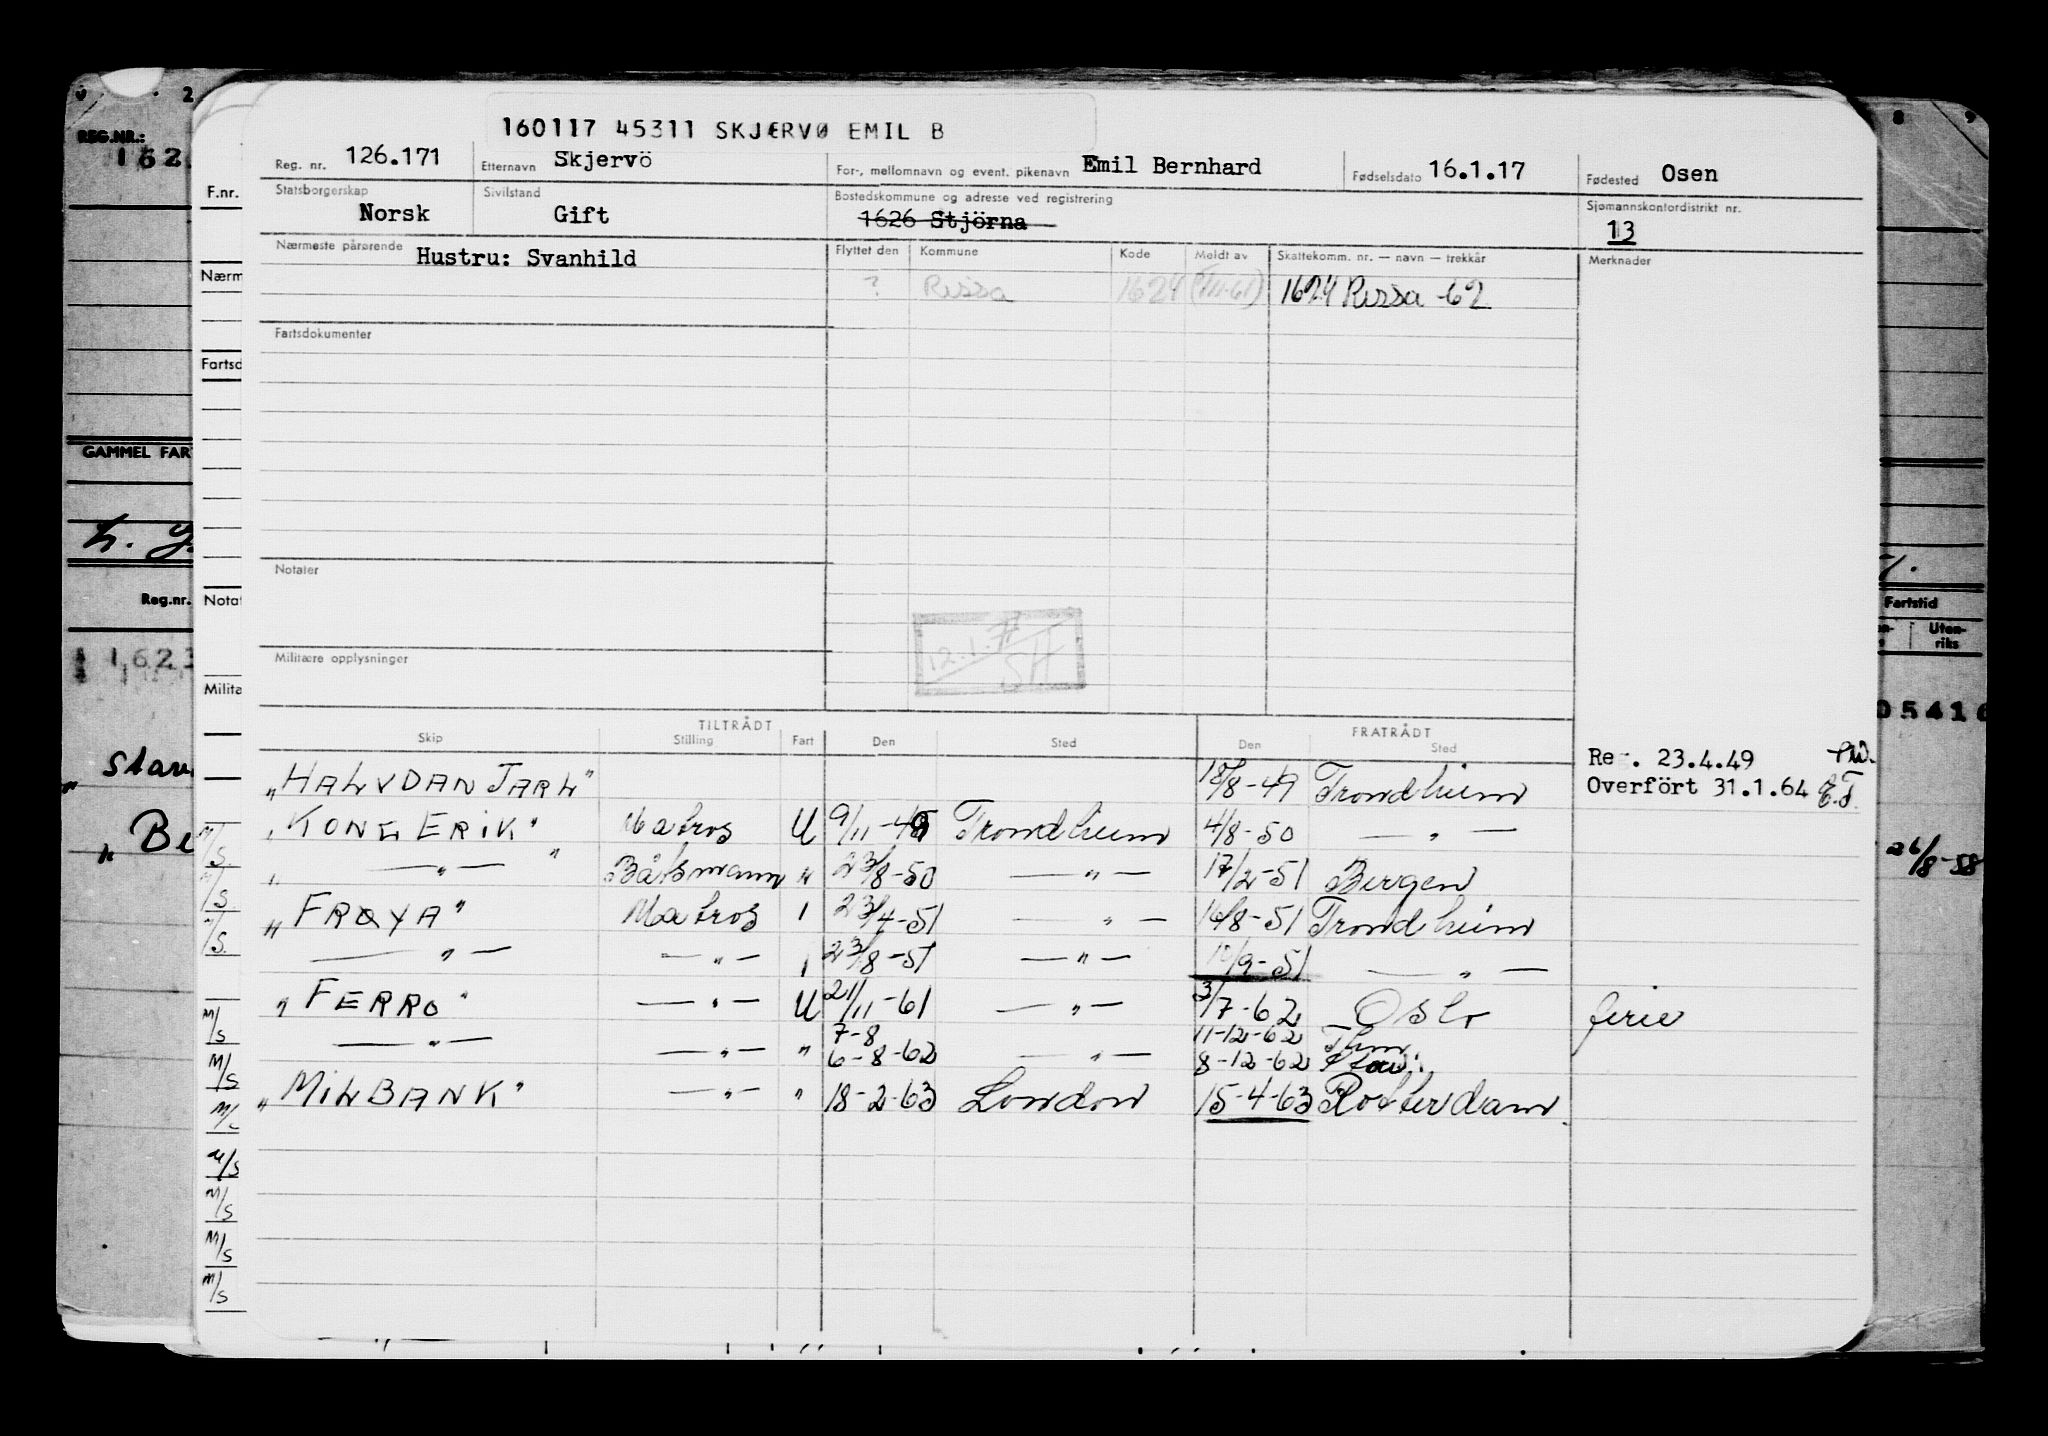 160117 45311 SKJERVØ EMIL B
Reg. nr. 126.171 Etternavn Skjervö For-, mellomnavn og event. pikenavn Emil Bernhard Fødselsdato 16.1.17 Fødested Osen
Statsborgerskap Norsk Sivilstand Gift Bostedskommune og adresse ved registrering 1626 Stjörna Sjømannskontordistrikt nr. 13
Nærmeste pårørende Hustru: Svanhild Flyttet den Kommune Kode Meldt av Skattekomm. nr. — navn — trekkår Merknader
? Rissa 1624 1624 Rissa -62
Fartsdokumenter
Notater
12.1.71
SH
Militære opplysninger
TILTRÅDT FRATRÅDT
Skip Stilling Fart Den Sted Den Sted
Re . 23.4.49
Overfört 31.1.64 E.T.
"HALVDAN JARL" 18/8-49 Trondheim
"KONG ERIK" Matros U 9/11-49 Trondheim 4/8-50 — " —
" — " — " Båtsmann " 23/8-50 — " — 17/2-51 Bergen
"FRØYA" Matros 1 23/4-51 — " — 16/8-51 Trondheim
— " — — " — 1 23/8-51 — " — 10/9-51 — " —
"FERRO" — " — U 21/11-61 — " — 3/7-62 Oslo ferie
7-8 11-12-62 Thm
— " — — " — " 6-8-62 — " — 8-12-62
"MILBANK" — " — " 18-2-63 London 15-4-63 Rotterdam
REG.NR.:
162
GAMMEL FAR
Reg.nr.
1623
Stav
" Be
F.nr.
Nærm
Fartsd
Notat
Milita
M/S
M/S
M/S
M/S
M/S
M/S
M/S
M/S
M/S
8 9
Fartstid
Uten-
riks
05416
26/8-58